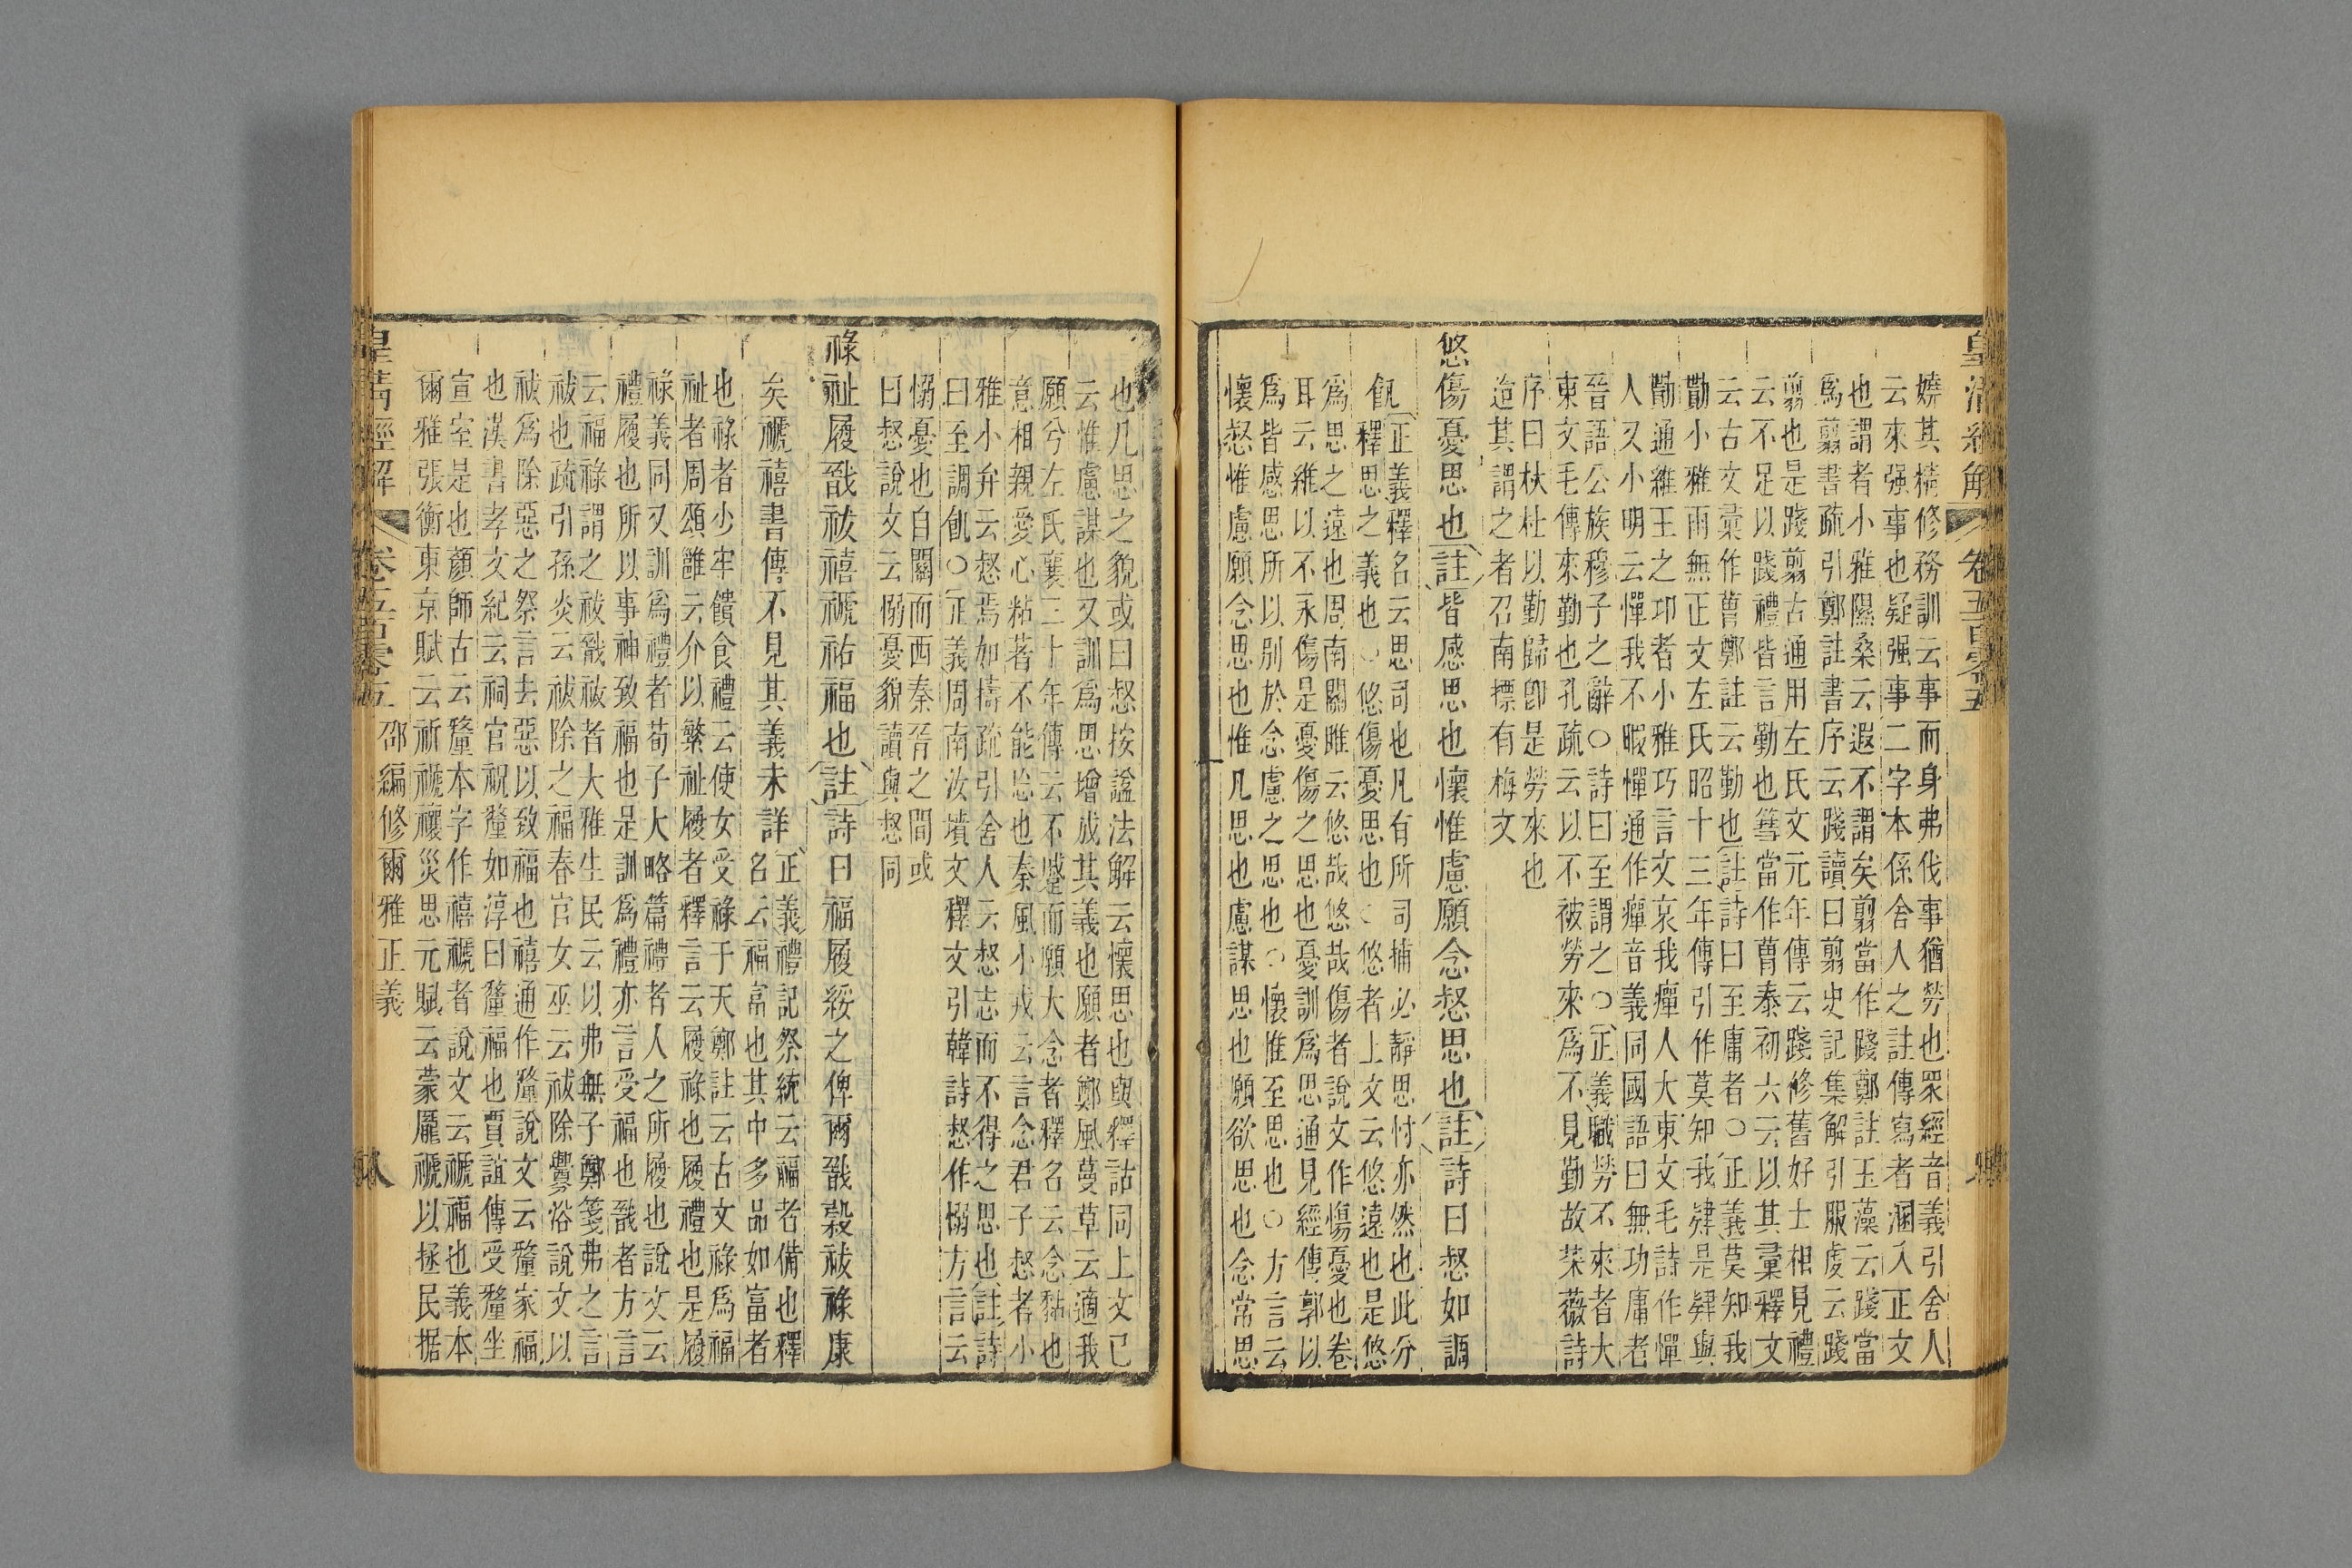 皇清經解 卷五百零五
嬈其精修務訓云事而身弗伐事猶勞也眾經音義引舍人
云來强事也疑强事二字本係舍人之註傳寫者溷入正文
也謂者小雅隰桑云遐不謂矣翦當作踐鄭註玉藻云踐當
爲翦書疏引鄭註書序云踐讀曰翦史記集解引服虔云踐
翦也是踐翦古通用左氏文元年傳云踐修舊好士相見禮
云不足以踐禮皆言勤也簭當作蓸泰初六云以其彙釋文
云古文彙作蓸鄭註云勤也註詩曰至庸者○正義莫知我
勩小雅雨無正文左氏昭十三年傳引作莫知我肄是肄與
勩通維王之邛者小雅巧言文哀我癉人大東文毛詩作憚
人又小明云憚我不暇憚通作癉音義同國語曰無功庸者
晉語公族穆子之辭○詩曰至謂之○正義職勞不來者大
東文毛傳來勤也孔疏云以不被勞來爲不見勤故采薇詩
序曰杕杜以勤歸卽是勞來也
迨其謂之者召南摽有梅文
悠傷憂思也註皆感思也懷惟慮願念惄思也註詩曰惄如調
飢正義釋名云思司也凡有所司捕必靜思忖亦然也此分
釋思之義也○悠傷憂思也○悠者上文云悠遠也是悠
爲思之遠也周南關雎云悠哉悠哉傷者說文作慯憂也卷
耳云維以不永傷是憂傷之思也憂訓爲思通見經傳郭以
爲皆感思所以別於念慮之思也○懷惟至思也○方言云
懷惄惟慮願念思也惟凡思也慮謀思也願欲思也念常思
也凡思之貌或曰惄按諡法解云懷思也與釋詁同上文已
云惟慮謀也又訓爲思增成其義也願者鄭風蔓草云適我
願兮左氏襄三十年傳云不蹙而願大念者釋名云念黏也
意相親愛心粘著不能忘也秦風小戎云言念君子惄者小
雅小弁云惄焉如擣疏引舍人云惄志而不得之思也註詩
曰至調飢○正義周南汝墳文釋文引韓詩惄作愵方言云
愵憂也自關而西秦晉之間或
曰惄說文云愵憂貌讀與惄同
祿祉履戩祓禧禠祜福也註詩曰福履綏之俾爾戩穀祓祿康
矣禠禧書傳不見其義未詳正義禮記祭統云福者備也釋
名云福富也其中多品如富者
也祿者少牢饋食禮云使女受祿于天鄭註云古文祿爲福
祉者周頌雝云介以繁祉履者釋言云履祿也履禮也是履
祿義同又訓爲禮者荀子大略篇禮者人之所履也說文云
禮履也所以事神致福也是訓爲禮亦言受福也戩者方言
云福祿謂之祓戩祓者大雅生民云以弗無子鄭箋弗之言
祓也疏引孫炎云祓除之福春官女巫云祓除釁浴說文以
祓爲除惡之祭言去惡以致福也禧通作釐說文云釐家福
也漢書孝文紀云祠官祝釐如淳曰釐福也賈誼傳受釐坐
宣室是也顏師古云釐本字作禧禠者說文云禠福也義本
爾雅張衡東京賦云祈禠禳災思元賦云蒙厖禠以拯民据
皇清經解 卷五百零五 邵編修爾雅正義 八